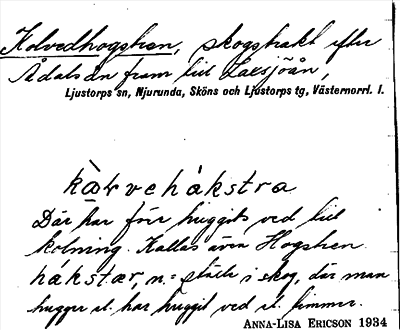 Kolvedhogstren, skogstrakt efter
Ådalsån fram till Laxsjöån,
Ljustorps sn, Njurunda, Sköns och Ljustorps tg, Västernorrl. l.
Där har förr huggits ved till
kolning. Kallas även Hogstren.
n. = ställe i skog, där man
hugger el. har huggit ved el. timmer.
ANNA-LISA ERICSON 1934